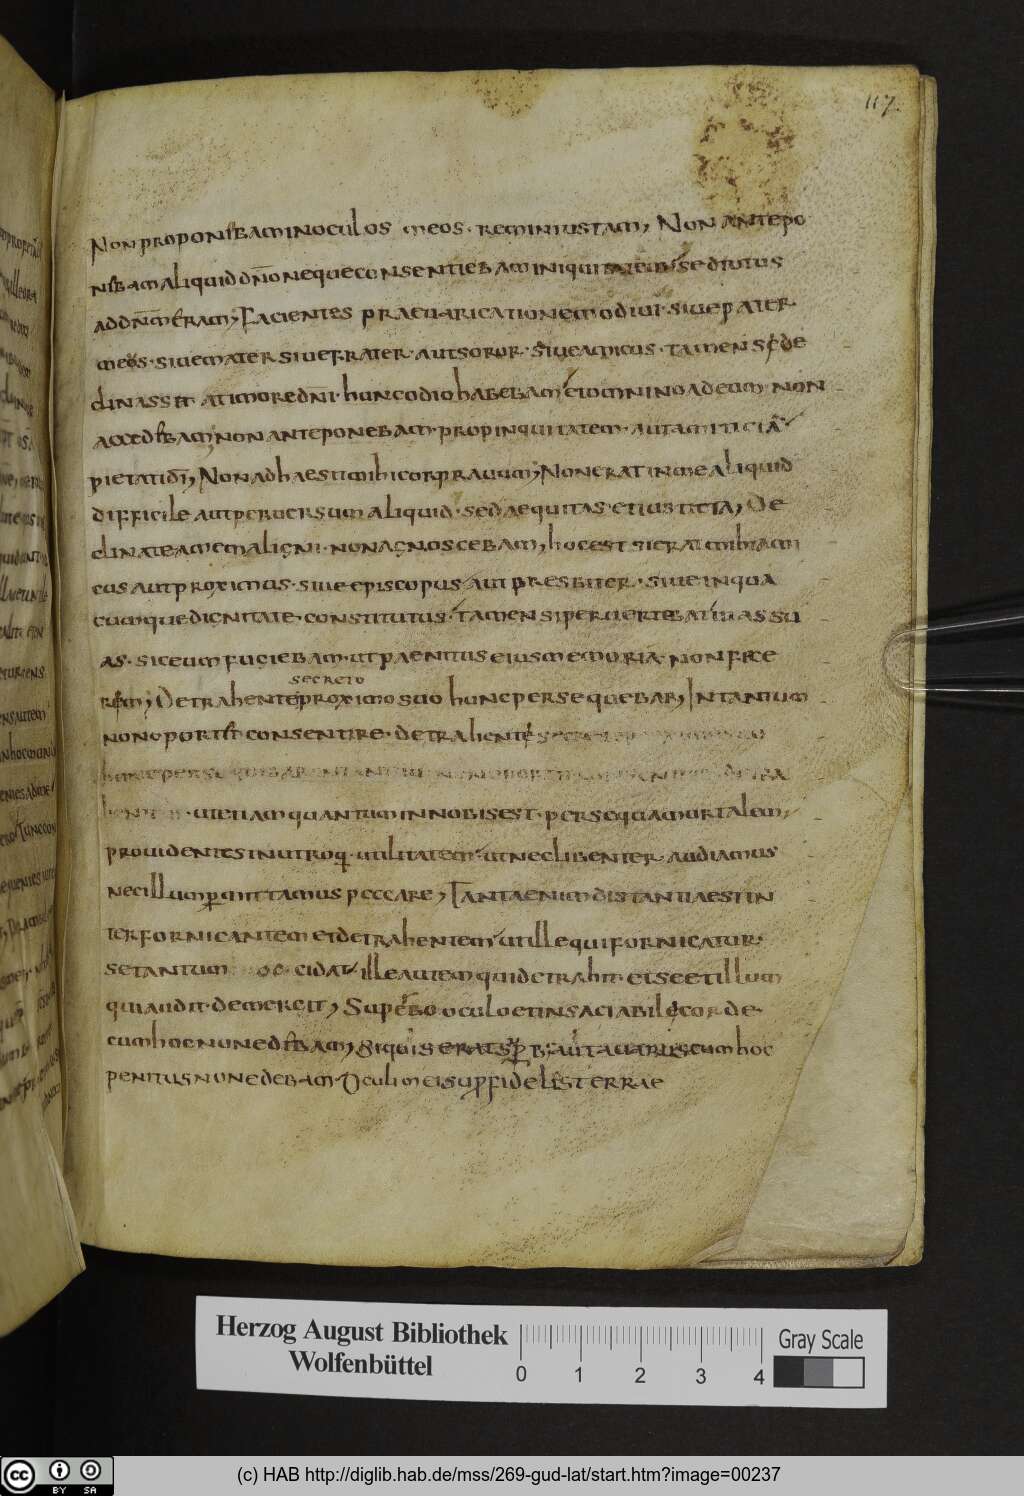 117
Non proponebam in oculos meos · rem iniustam, Non antepo
nebam aliquid dn̄o neque consentiebam iniquitatibus sed intus
ad dn̄m eram, Facientes praevaricationem odivi · sive pater
meus · sive mater sive frater · aut soror · sive amicus · tamen si de
clinasset a timore dn̄i · hunc odio habebam et omnino ad eum non
accedebam, non anteponebam · propinquitatem · aut amiticiā
pietati dī, Non adhaesit mihi cor pravum, Non erat in me aliquid
difficile aut perversum aliquid · sed aequitas et iustitia, De
clinate a me maligni · non agnoscebam, hoc est si erat mihi ami
cus aut proximus · sive episcopus aut presbiter · sive in qua
cumque dignitate constitutus · tamen si pervertebat vias su
as · sic eum fugiebam · ut paenitus eius memoria · non face
rem, Detrahente proximo suo hunc persequebar, In tantum
secreto
non oportet consentire · detrahente
ut etiam quantum in nobis est · persequamur talem,
providentes in utroq· utilitatem · ut nec libenter audiamus
nec illum p̄mittamus peccare, Tanta enim distantia est in
ter fornicantem et detrahentem ut ille qui fornicatur
se tantum occidat ille autem qui detrahit et se et illum
qui audit · demergit, Superbo oculo et insaciabile corde
cum hoc non edebam, Si quis erat aut avarus cum hoc
penitus non edebam · Oculi mei sup̄ fideles terrae
Herzog August Bibliothek
Wolfenbüttel
0 1 2 3 4
Gray Scale
cc BY SA
(c) HAB http://diglib.hab.de/mss/269-gud-lat/start.htm?image=00237